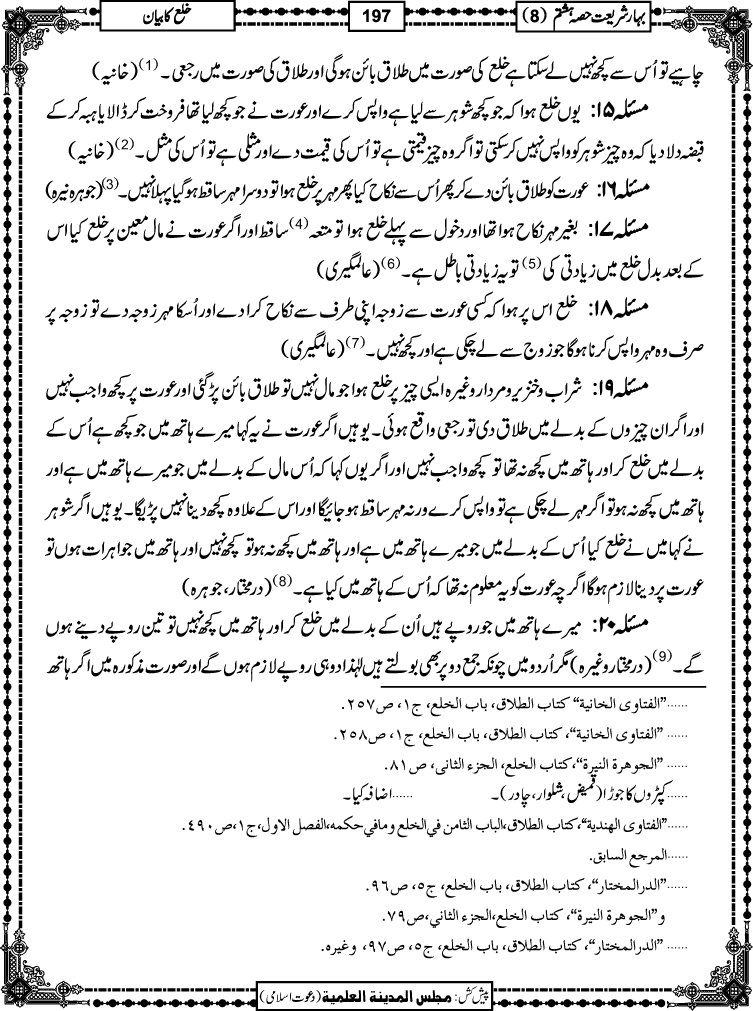 بہار شریعت حصہ ہشتم (8)
197
خلع کا بیان
چاہیے تو اُس سے کچھ نہیں لے سکتا ہے خلع کی صورت میں طلاق بائن ہوگی اور طلاق کی صورت میں رجعی۔ (1) (خانیہ)
مسئلہ ۱۵: یوں خلع ہوا کہ جو کچھ شوہر سے لیا ہے واپس کرے اور عورت نے جو کچھ لیا تھا فروخت کر ڈالا یا ہبہ کر کے
قبضہ دلا دیا کہ وہ چیز شوہر کو واپس نہیں کر سکتی تو اگر وہ چیز قیمتی ہے تو اُس کی قیمت دے اور مثلی ہے تو اُس کی مثل۔ (2) (خانیہ)
مسئلہ ۱۶: عورت کو طلاق بائن دے کر پھر اُس سے نکاح کیا پھر مہر پر خلع ہوا تو دوسرا مہر ساقط ہوگیا پہلا نہیں۔ (3) (جوہرہ نیرہ)
مسئلہ ۱۷: بغیر مہر نکاح ہوا تھا اور دخول سے پہلے خلع ہوا تو متعہ (4) ساقط اور اگر عورت نے مال معین پر خلع کیا اس
کے بعد بدل خلع میں زیادتی کی (5) تو یہ زیادتی باطل ہے۔ (6) (عالمگیری)
مسئلہ ۱۸: خلع اس پر ہوا کہ کسی عورت سے زوجہ اپنی طرف سے نکاح کرا دے اور اُسکا مہر زوجہ دے تو زوجہ پر
صرف وہ مہر واپس کرنا ہوگا جو زوج سے لے چکی ہے اور کچھ نہیں۔ (7) (عالمگیری)
مسئلہ ۱۹: شراب و خنزیر و مردار وغیرہ ایسی چیز پر خلع ہوا جو مال نہیں تو طلاق بائن پڑگئی اور عورت پر کچھ واجب نہیں
اور اگر ان چیزوں کے بدلے میں طلاق دی تو رجعی واقع ہوئی۔ یوہیں اگر عورت نے یہ کہا میرے ہاتھ میں جو کچھ ہے اُس کے
بدلے میں خلع کر اور ہاتھ میں کچھ نہ تھا تو کچھ واجب نہیں اور اگر یوں کہا کہ اُس مال کے بدلے میں جو میرے ہاتھ میں ہے اور
ہاتھ میں کچھ نہ ہو تو اگر مہر لے چکی ہے تو واپس کرے ورنہ مہر ساقط ہو جائیگا اور اس کے علاوہ کچھ دینا نہیں پڑیگا۔ یوہیں اگر شوہر
نے کہا میں نے خلع کیا اُس کے بدلے میں جو میرے ہاتھ میں ہے اور ہاتھ میں کچھ نہ ہو تو کچھ نہیں اور ہاتھ میں جواہرات ہوں تو
عورت پر دینا لازم ہوگا اگرچہ عورت کو یہ معلوم نہ تھا کہ اُس کے ہاتھ میں کیا ہے۔ (8) (درمختار، جوہرہ)
مسئلہ ۲۰: میرے ہاتھ میں جو روپے ہیں اُن کے بدلے میں خلع کر اور ہاتھ میں کچھ نہیں تو تین روپے دینے ہوں
گے۔ (9) (درمختار وغیرہ) مگر اُردو میں چونکہ جمع دو پر بھی بولتے ہیں لہٰذا دو ہی روپے لازم ہوں گے اور صورت مذکورہ میں اگر ہاتھ
......"الفتاوى الخانية" كتاب الطلاق، باب الخلع، ج١، ص٢٥٧.
...... "الفتاوى الخانية"، كتاب الطلاق، باب الخلع، ج١، ص٢٥٨.
...... "الجوهرة النيرة"،كتاب الخلع، الجزء الثانى، ص٨١.
......کپڑوں کا جوڑا (قمیض، شلوار، چادر)۔ ......اضافہ کیا۔
......"الفتاوى الهندية"،كتاب الطلاق،الباب الثامن في الخلع ومافي حكمه،الفصل الاول،ج١،ص٤٩٠.
......المرجع السابق.
......"الدرالمختار"، كتاب الطلاق، باب الخلع، ج٥، ص٩٦.
و"الجوهرة النيرة"، كتاب الخلع،الجزء الثاني،ص٧٩.
...... "الدرالمختار"، كتاب الطلاق، باب الخلع، ج٥، ص٩٧، وغيره.
پیش کش: مجلس المدينة العلمية (دعوت اسلامی)